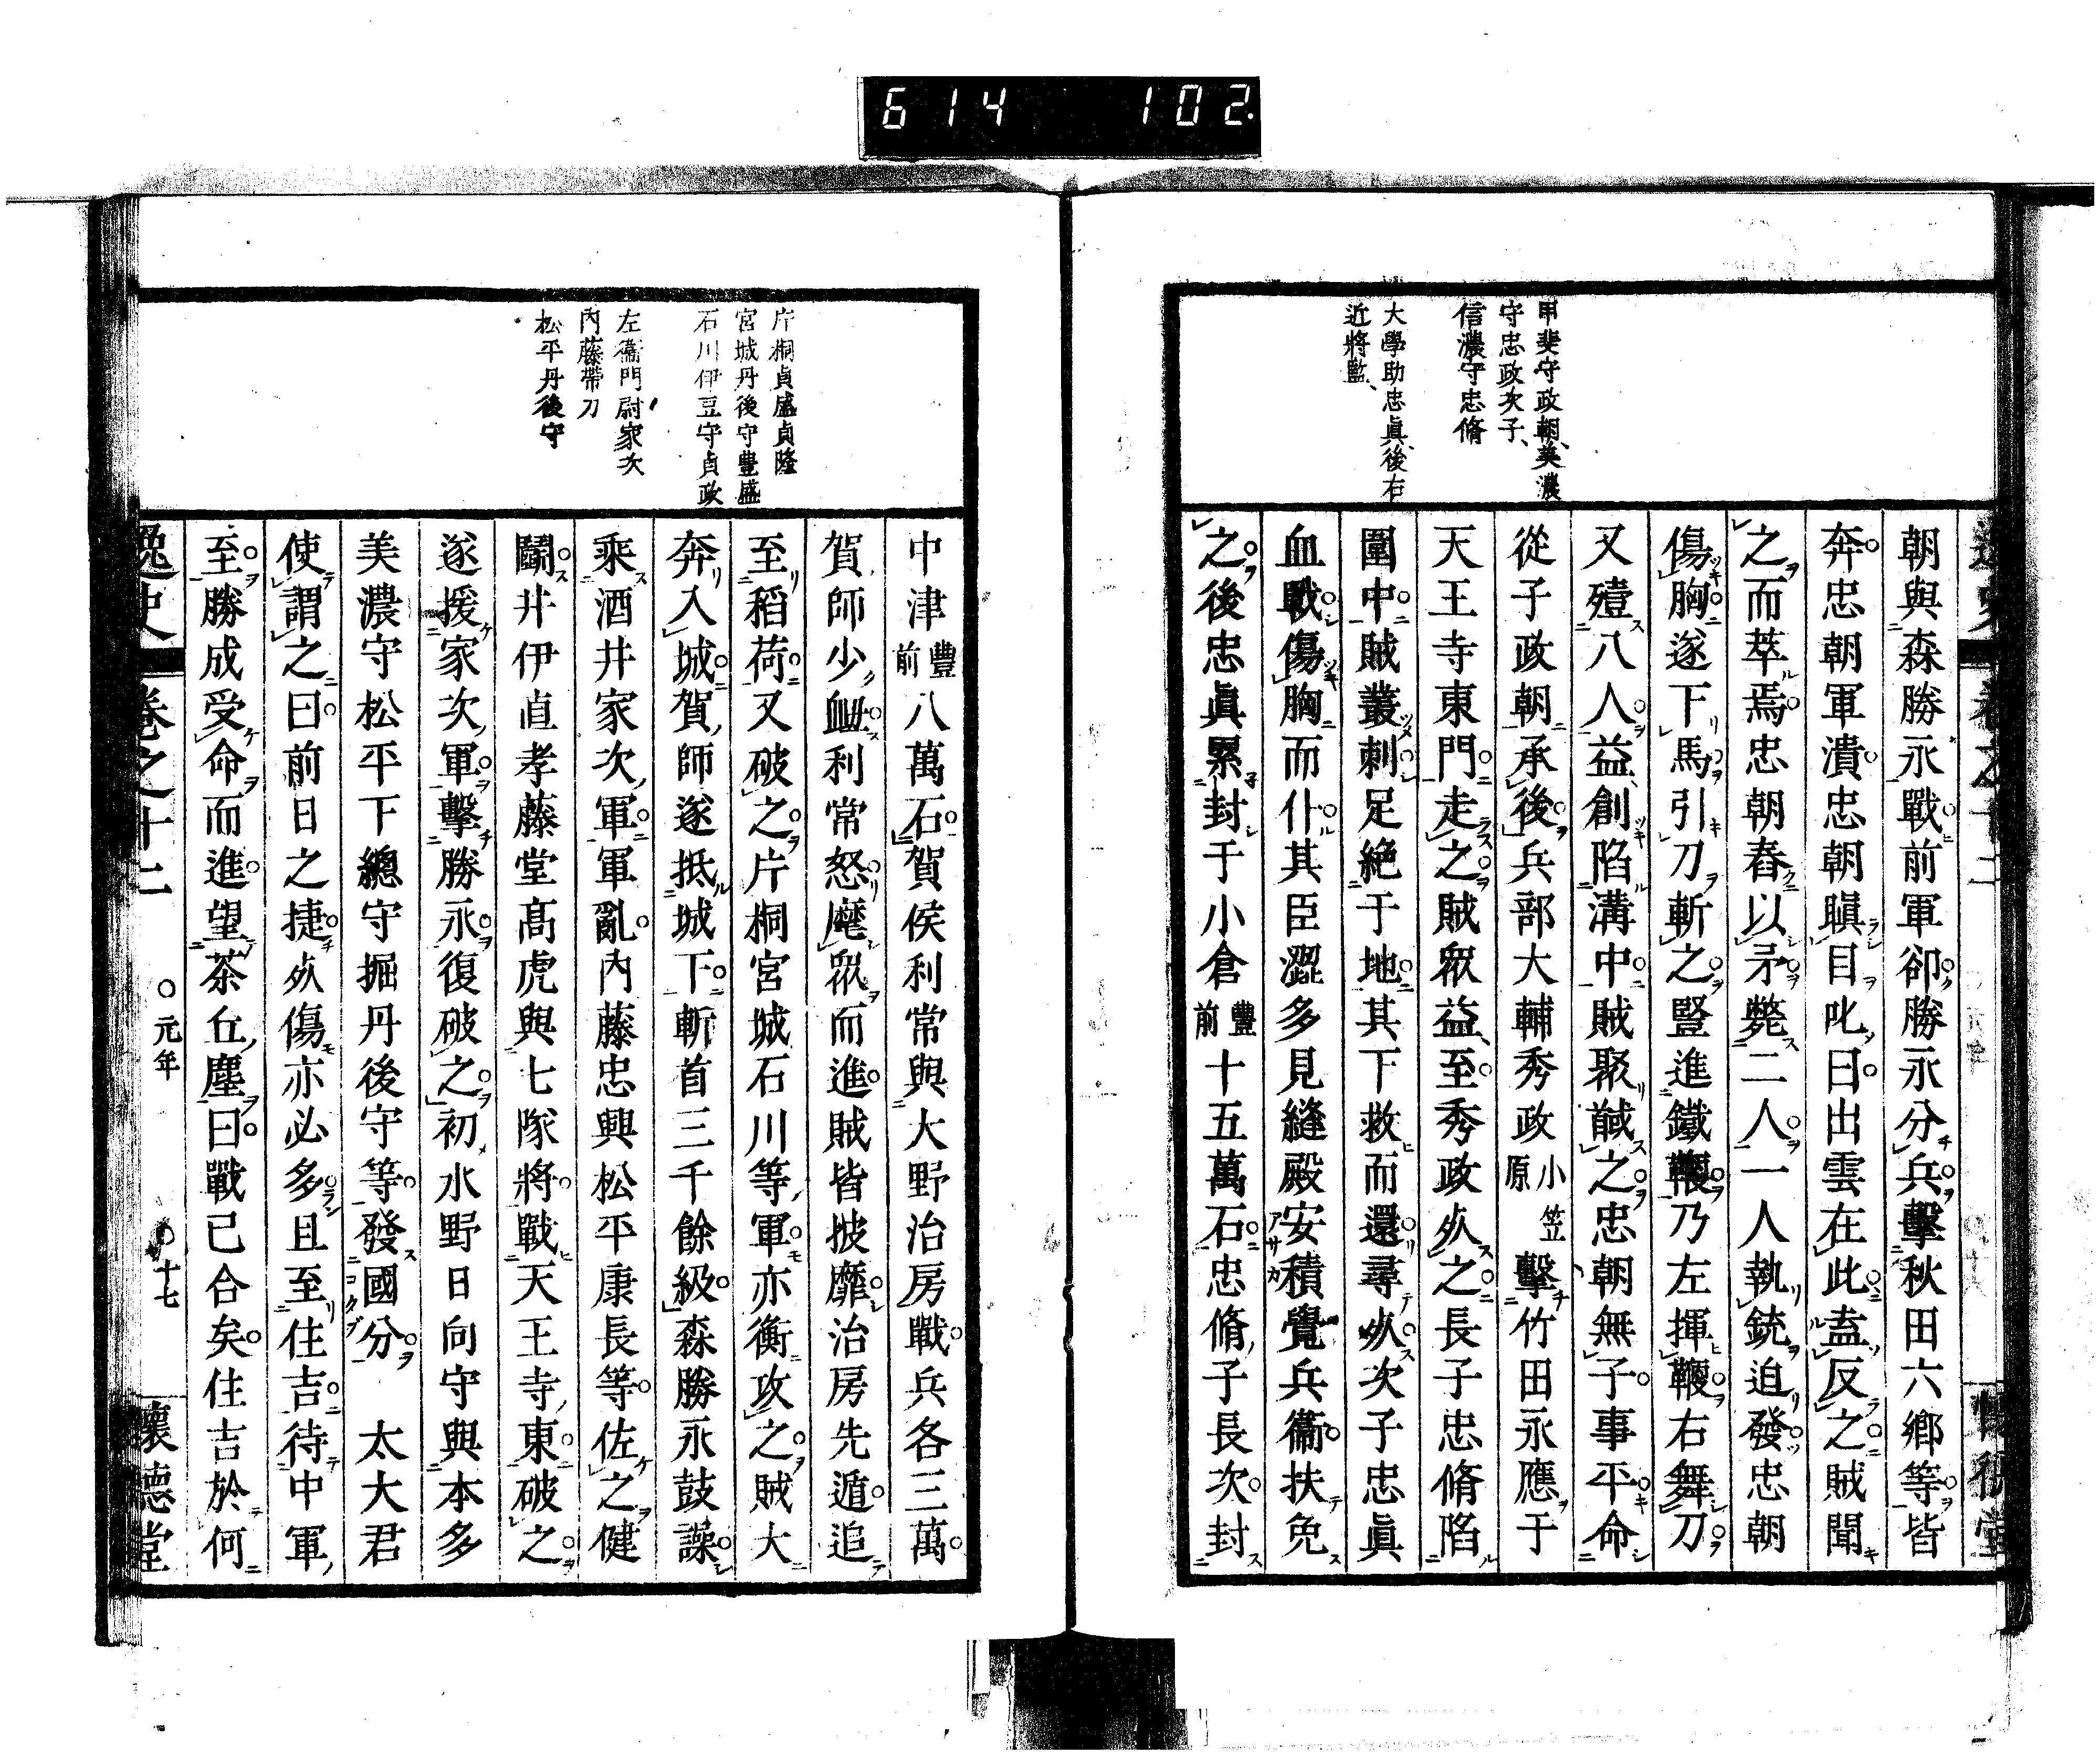 614 102.
甲斐守政朝、美濃
守忠政次子、
信濃守忠脩
大學助忠眞、後右
近將監、
朝與森勝永戰前軍卻勝永分兵擊秋田六鄉等皆
奔忠朝軍潰忠朝瞋目叱曰出雲在此盍反之賊聞
之而萃焉忠朝舂以矛斃二人一人執銃迫發忠朝
傷胸遂下馬引刀斬之豎進鐵鞭乃左揮鞭右舞刀
又殪八人益創陷溝中賊聚馘之忠朝無子事平命
從子政朝承後兵部大輔秀政小笠原擊竹田永應于
天王寺東門走之賊眾益至秀政死之長子忠脩陷
圍中賊叢刺足絕于地其下救而還尋死次子忠眞
血戰傷胸而仆其臣澀多見縫殿安積覺兵衞扶免
之後忠眞累封于小倉豐前十五萬石忠脩子長次封
片桐貞盛貞隆
宮城丹後守豐盛
石川伊豆守貞政
左衞門尉家次
內藤帶刀
松平丹後守
中津豐前八萬石賀侯利常與大野治房戰兵各三萬
賀師少衄利常怒麾眾而進賊皆披靡治房先遁追
至稻荷又破之片桐宮城石川等軍亦衡攻之賊大
奔入城賀師遂抵城下斬首三千餘級森勝永鼓譟
乘酒井家次軍軍亂內藤忠興松平康長等佐之健
鬭井伊直孝藤堂高虎與七隊將戰天王寺東破之
遂援家次軍擊勝永復破之初水野日向守與本多
美濃守松平下總守堀丹後守等發國分 太大君
使謂之曰前日之捷死傷亦必多且至住吉待中軍
至勝成受命而進望茶丘塵曰戰已合矣住吉於何
逸史 卷之十二 ○元年 ○十七 懷德堂